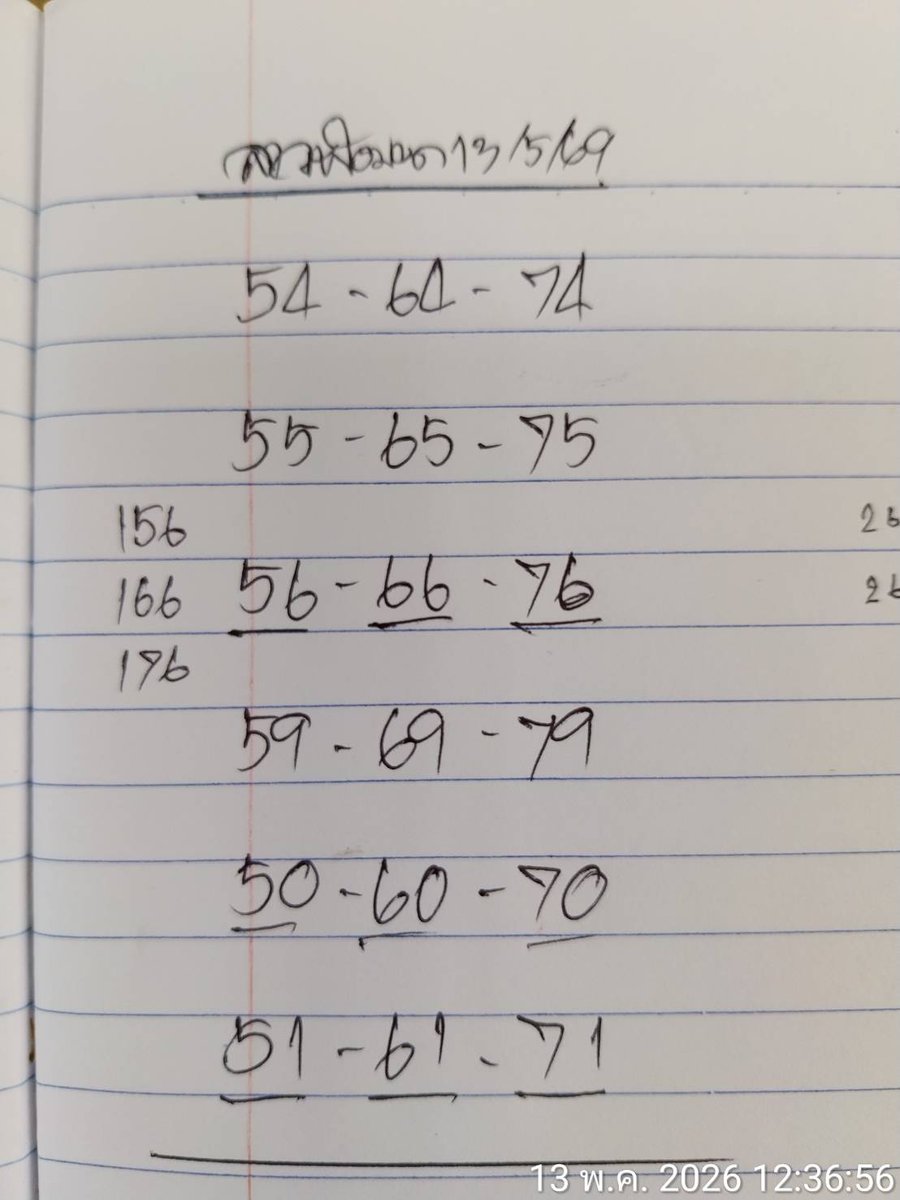 ลาวพัฒนา 13/5/69
54 - 64 - 74
55 - 65 - 75
156
26
166 56 - 66 - 76
26
176
59 - 69 - 79
50 - 60 - 70
51 - 61 - 71
13 พ.ค. 2026 12:36:56